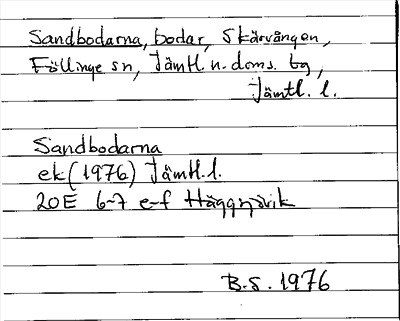 Sandbodarna, bodar, Skärvången,
Föllinge sn, Jämtl. n. doms. tg,
Jämtl. l.
Sandbodarna
ek (1976) Jämtl. l.
20E 6-7 e-f Häggsjövik
B.S. 1976